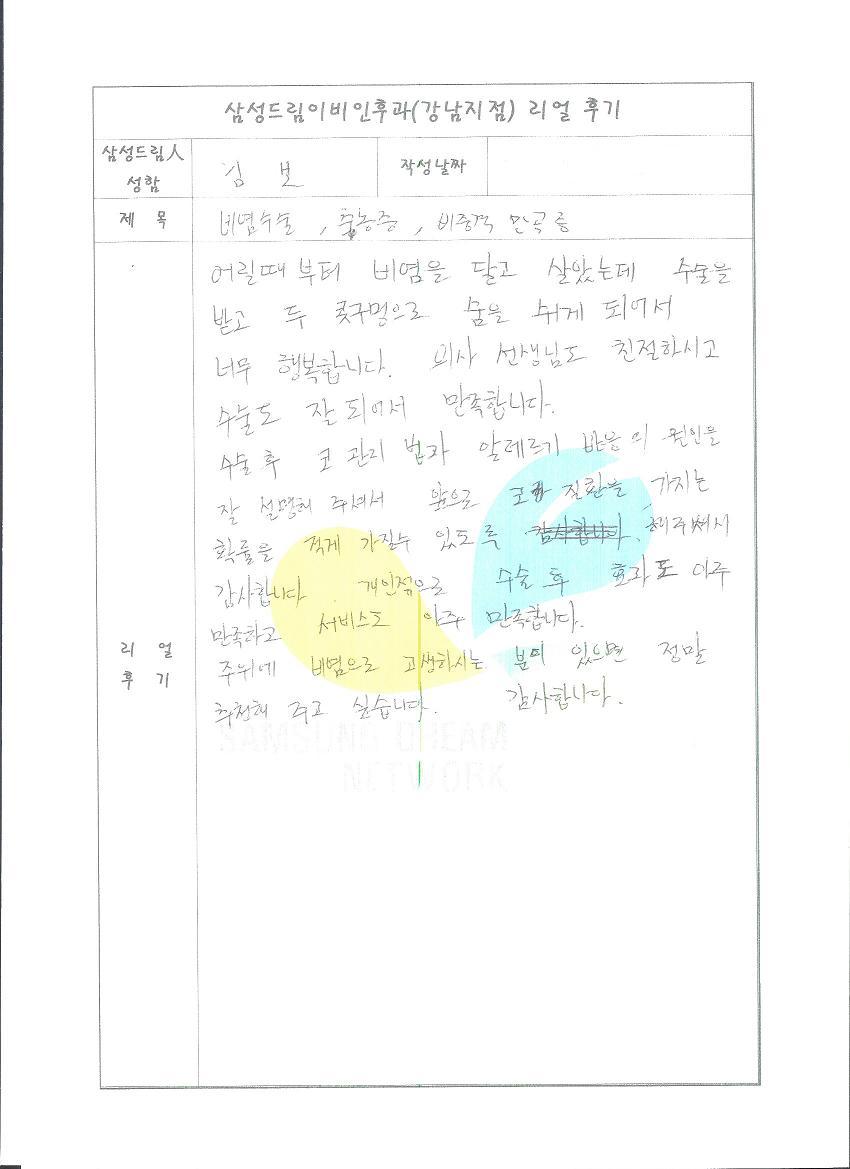 삼성드림이비인후과(강남지점) 리얼 후기
삼성드림人
성함
작성날짜
제 목
비염수술 , 축농증 , 비중격 만곡증
어릴때 부터 비염을 달고 살았는데 수술을
받고 두 콧구멍으로 숨을 쉬게 되어서
너무 행복합니다. 의사 선생님도 친절하시고
수술도 잘 되어서 만족합니다.
수술 후 코 관리 법과 알레르기 반응의 원인을
잘 설명해 주셔서 앞으로 코 질환을 가지는
확률을 적게 가질수 있도록 해주셔서
감사합니다. 개인적으로 수술 후 효과도 아주
만족하고 서비스도 아주 만족합니다.
주위에 비염으로 고생하시는 분이 있으면 정말
추천해 주고 싶습니다. 감사합니다.
리 얼
후 기
SAMSUNG DREAM
NETWORK